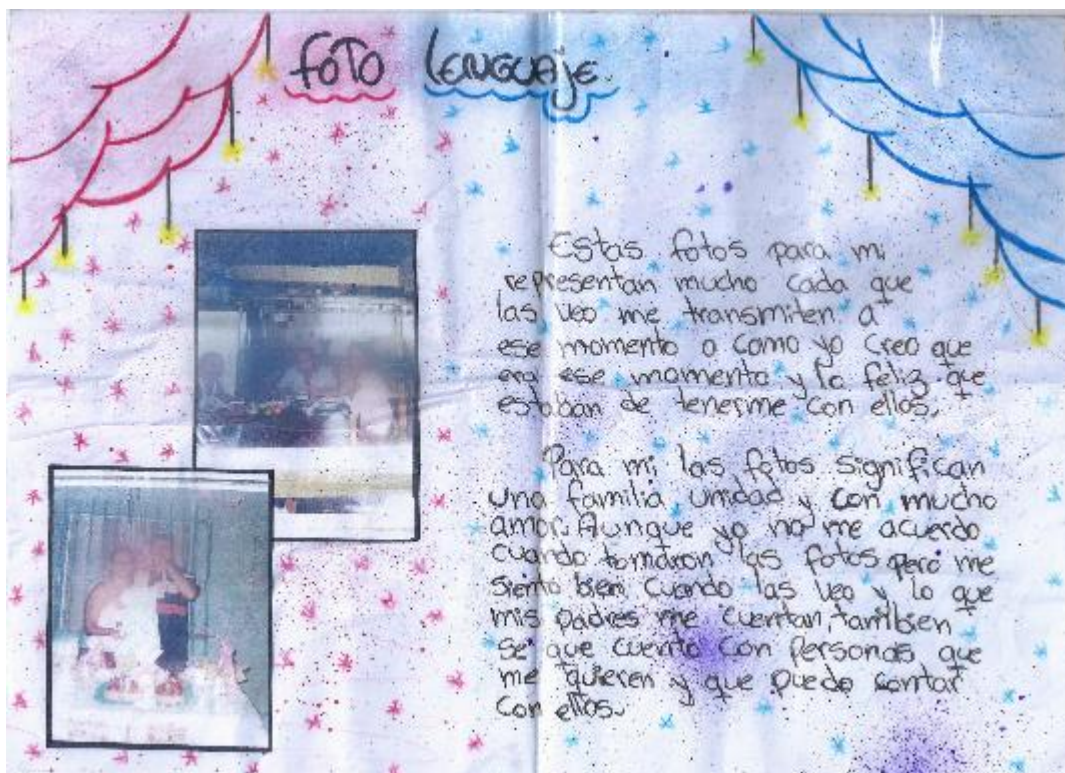 foto lenguaje
Estas fotos para mi
representan mucho cada que
las veo me transmiten a
ese momento o como yo creo que
era ese momento y lo feliz que
estaban de tenerme con ellos.
Para mi las fotos significan
una familia unidad y con mucho
amor. Aunque yo no me acuerdo
cuando tomaron las fotos pero me
siento bien cuando las veo y lo que
mis padres me cuentan, tambien
se que cuento con personas que
me quieren y que puedo contar
con ellos.